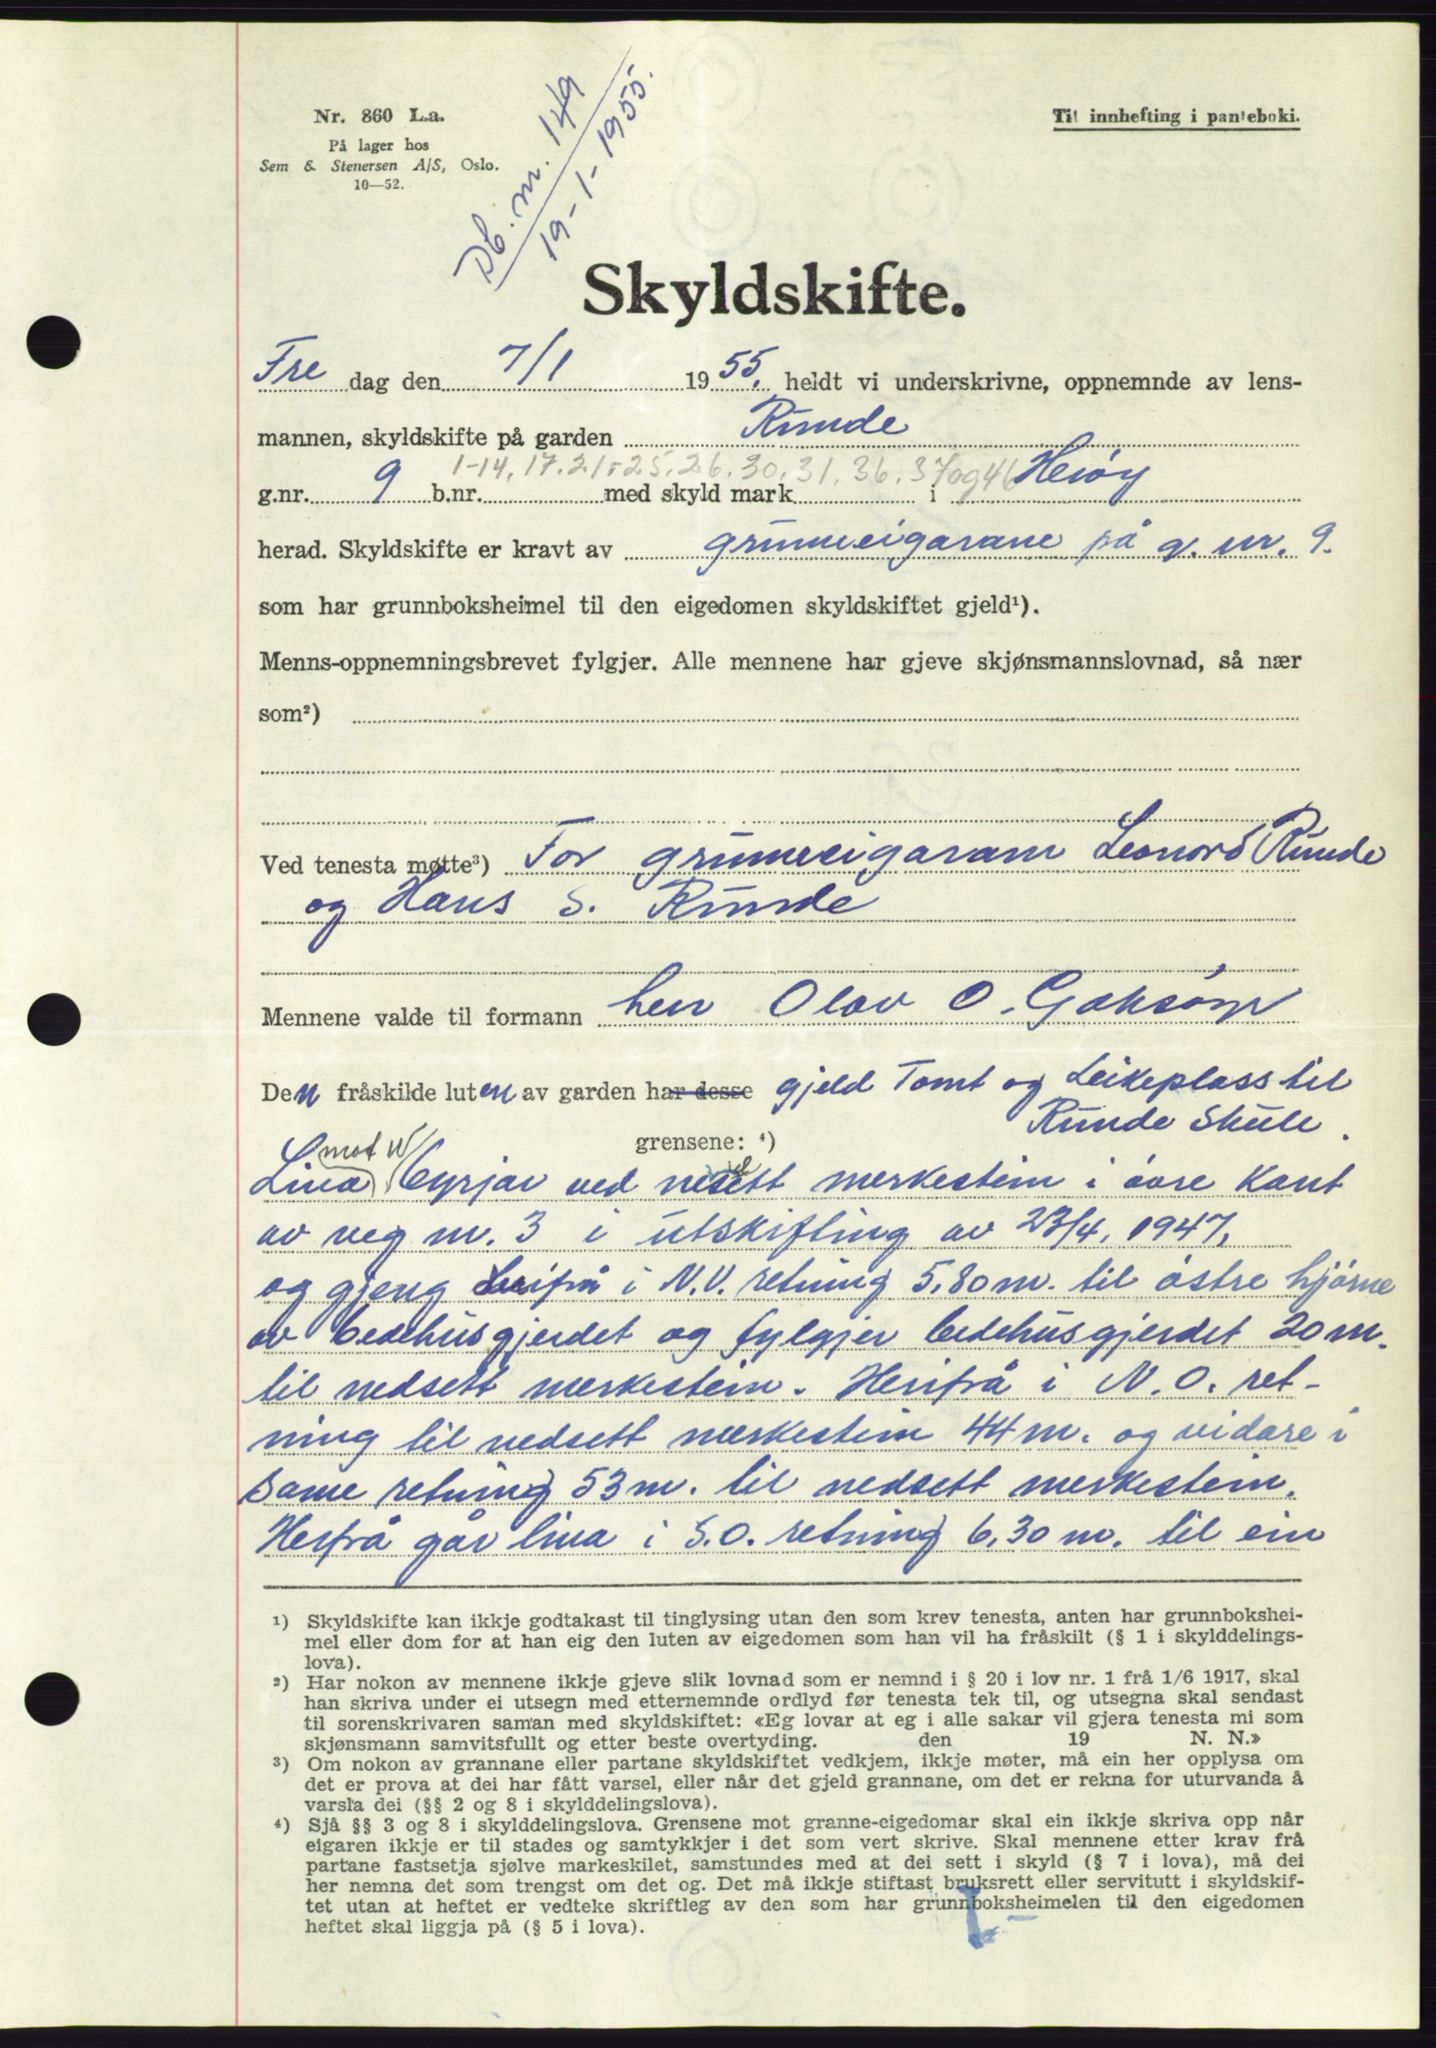 Nr. 860 L.a.
På lager hos
Sem & Stenersen A/S, Oslo.
10—52.
Db. nr. 149
19-1-1955.
Til innhefting i panteboki.
Skyldskifte.
Fre dag den 7/1 1955. heldt vi underskrivne, oppnemnde av lens-
mannen, skyldskifte på garden Runde
g.nr. 9 b.nr. 1-14, 17. 21-25. 26. 30. 31. 36. 37 og 46 med skyld mark i Herøy
herad. Skyldskifte er kravt av grunneigarane på g. nr. 9.
som har grunnboksheimel til den eigedomen skyldskiftet gjeld¹).
Menns-oppnemningsbrevet fylgjer. Alle mennene har gjeve skjønsmannslovnad, så nær
som²)
Ved tenesta møtte³) For grunneigaram Leonard Runde
og Hans S. Runde
Mennene valde til formann herr Olav O. Goksöyr
Den fråskilde luten av garden har desse gjeld Tomt og Leikeplass til
Runde Skule.
grensene: ⁴)
Lina mot V byrjar ved nedsett merkestein i övre kant
av veg nr. 3 i utskifting av 23/4, 1947,
og gjeng herifrå i N.V. retning 5,80 m. til östre hjörne
av bedehusgjerdet og fylgjer bedehusgjerdet 20 m.
til nedsett merkestein. Herifrå i N.O. ret-
ning til nedsett merkestein 44 m. og vidare i
same retning 53 m. til nedsett merkestein.
Herfrå går lina i S.O. retning 6,30 m. til ein
¹) Skyldskifte kan ikkje godtakast til tinglysing utan den som krev tenesta, anten har grunnbokshei-
mel eller dom for at han eig den luten av eigedomen som han vil ha fråskilt (§ 1 i skylddelings-
lova).
²) Har nokon av mennene ikkje gjeve slik lovnad som er nemnd i § 20 i lov nr. 1 frå 1/6 1917, skal
han skriva under ei utsegn med etternemnde ordlyd før tenesta tek til, og utsegna skal sendast
til sorenskrivaren saman med skyldskiftet: «Eg lovar at eg i alle sakar vil gjera tenesta mi som
skjønsmann samvitsfullt og etter beste overtyding. den 19 N. N.»
³) Om nokon av grannane eller partane skyldskiftet vedkjem, ikkje møter, må ein her opplysa om
det er prova at dei har fått varsel, eller når det gjeld grannane, om det er rekna for uturvanda å
varsla dei (§§ 2 og 8 i skylddelingslova).
⁴) Sjå §§ 3 og 8 i skylddelingslova. Grensene mot granne-eigedomar skal ein ikkje skriva opp når
eigaren ikkje er til stades og samtykkjer i det som vert skrive. Skal mennene etter krav frå
partane fastsetja sjølve markeskilet, samstundes med at dei sett i skyld (§ 7 i lova), må dei
her nemna det som trengst om det og. Det må ikkje stiftast bruksrett eller servitutt i skyldskif-
tet utan at heftet er vedteke skriftleg av den som har grunnboksheimelen til den eigedomen
heftet skal liggja på (§ 5 i lova).